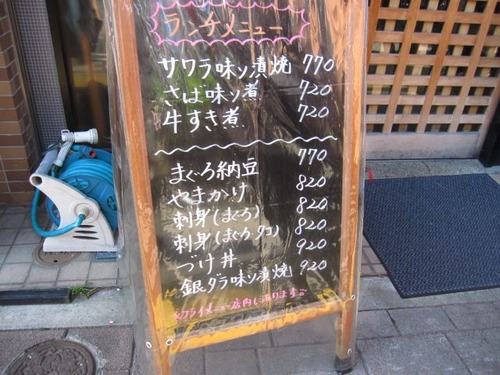 ランチメニュー
サワラ味ソ漬焼 770
さば味ソ煮 720
牛すき煮 720
まぐろ納豆 770
やまかけ 820
刺身(まぐろ) 820
刺身(まぐろ・タコ) 820
づけ丼 920
銀ダラ味ソ漬焼 920
フライメニュー店内に有ります